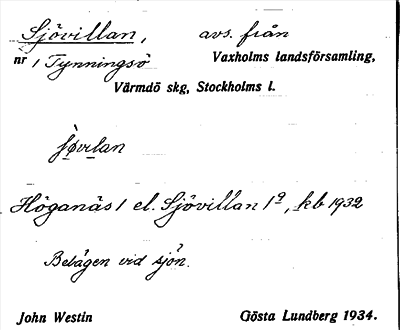 Sjövillan, avs. från
nr 1 Tynningsö Vaxholms landsförsamling,
Värmdö skg, Stockholms l.
Höganäs 1 el. Sjövillan 1⁹, kb 1932
Belägen vid sjön.
John Westin Gösta Lundberg 1934.